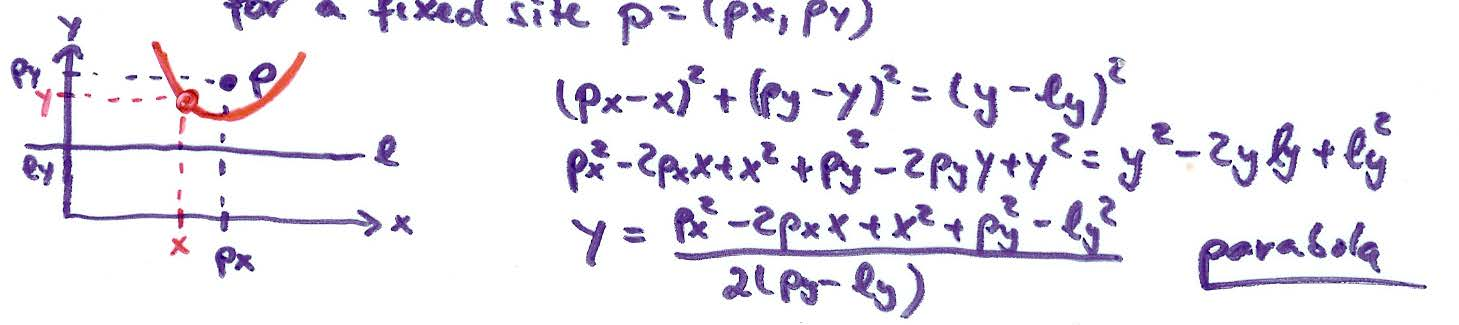 for a fixed site p = (px, py)
y
py
y
p
ly
l
x
x
px
(px-x)² + (py-y)² = (y-ly)²
px² - 2pxx + x² + py² - 2pyy + y² = y² - 2yly + ly²
y = px² - 2pxx + x² + py² - ly²
2(py - ly)
parabola